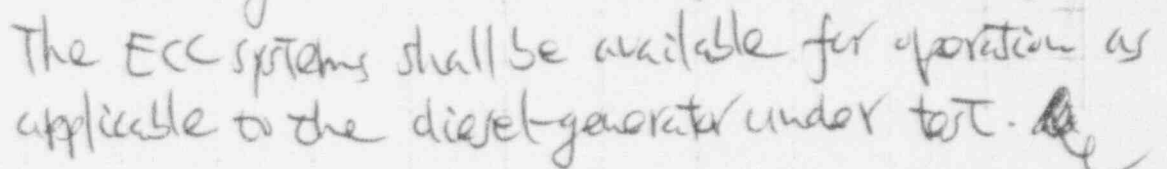 The ECC systems shall be available for operation as
applicable to the diesel-generator under test.